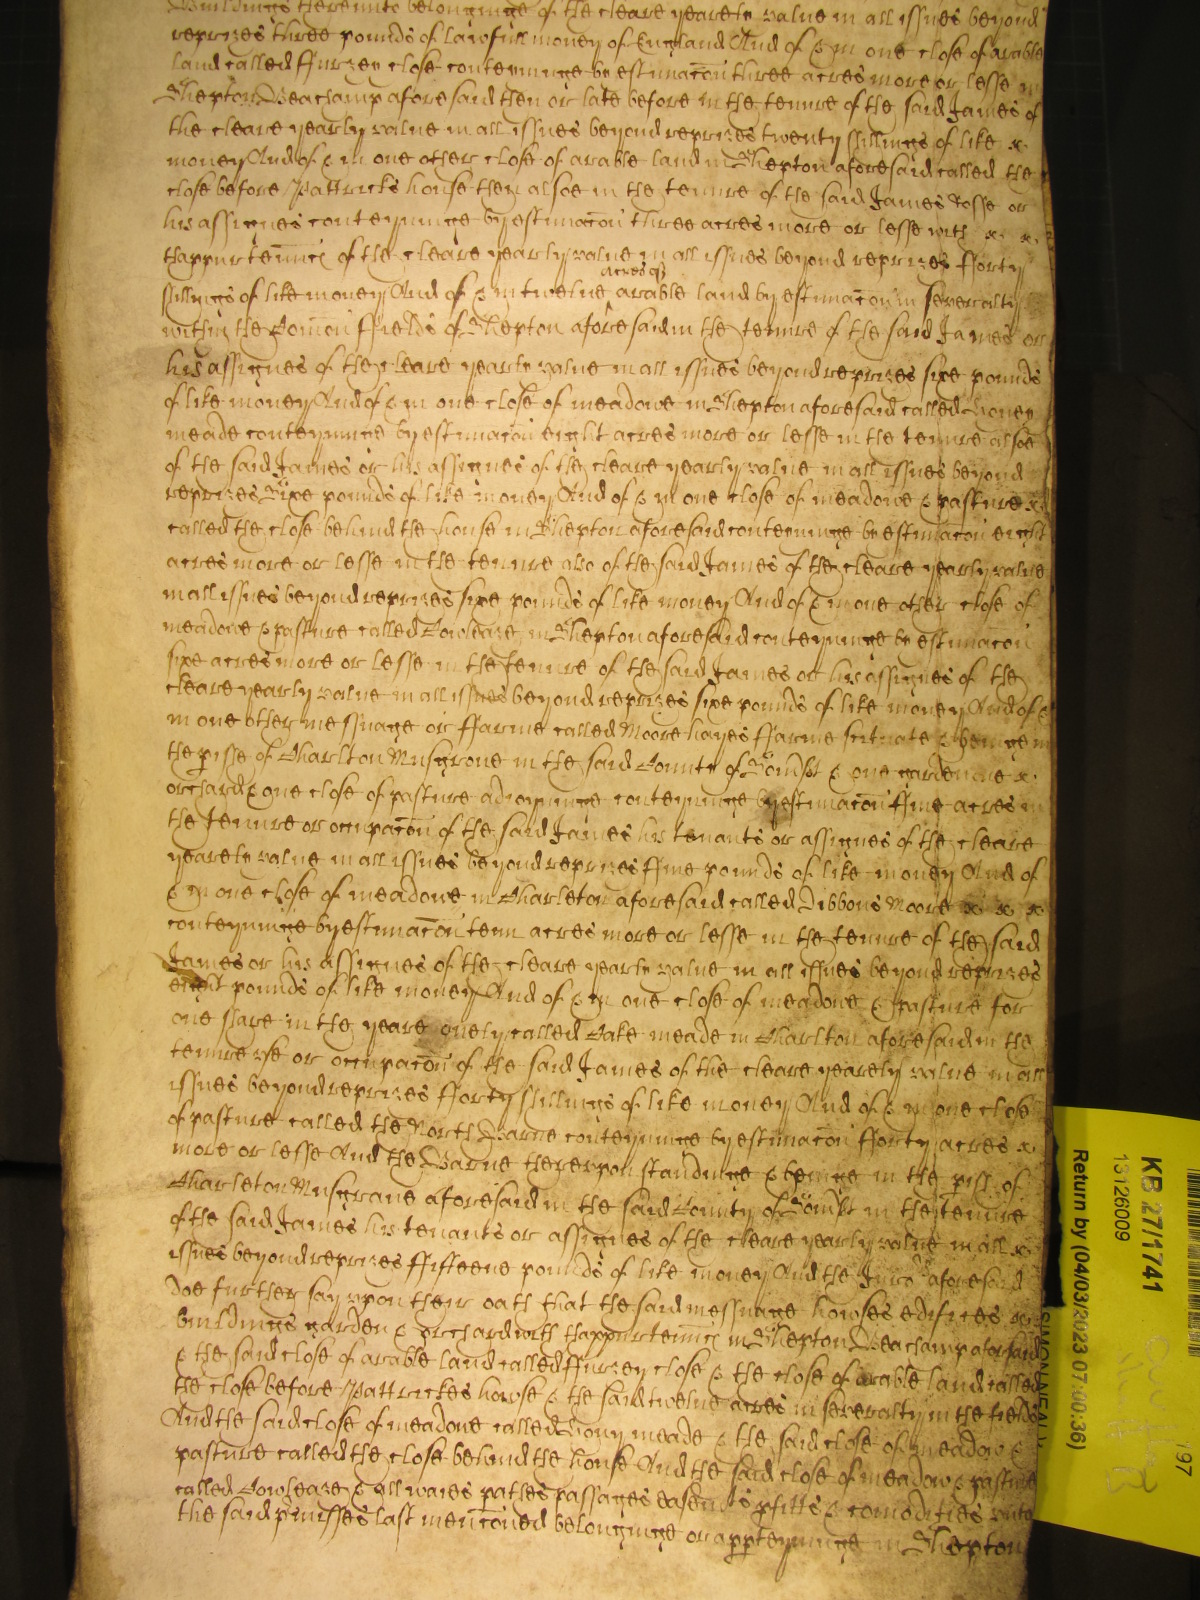 Buildings thereunto belonginge of the cleare yearely value in all issues beyond
reprizes three pounds of lawfull money of England And of & in one close of arable
land called ffurzey close conteyninge by estimacon three acres more or lesse in
Shepton Beachamp aforesaid then or late before in the tenure of the said James of
the cleare yearly value in all issues beyond reprizes twenty shillings of like
money And of & in one other close of arable land in Shepton aforesaid called the
close before Pattricks house then alsoe in the tenure of the said James Rosse or
his assignes conteyninge by estimacon three acres more or lesse with
thappurtennc of the cleare yearly value in all issues beyond reprizes fforty
acres of
shillings of like money And of & in twelue arable land by estimacon in severalty
within the Comon ffields of Shepton aforesaid in the tenure of the said James or
his assignes of the cleare yearly value in all issues beyond reprizes sixe pounds
of like money And of & in one close of meadowe in Shepton aforesaid called
meade conteyninge by estimacon eight acres more or lesse in the tenure alsoe
of the said James or his assignes of the cleare yearly value in all issues beyond
reprizes Sixe pounds of like money And of & in one close of meadowe & pasture
called the close behind the house in Shepton aforesaid conteyninge by estimacon eight
acres more or lesse in the tenure also of the said James of the cleare yearly value
in all issues beyond reprizes sixe pounds of like money And of & in one other close of
meadowe & pasture called Cowleaze in Shepton aforesaid conteyninge by estimacon
sixe acres more or lesse in the tenure of the said James or his assignes of the
cleare yearly value in all issues beyond reprizes sixe pounds of like money And of &
in one other messuage or ffarme called Moore hayes ffarme scituate & beinge in
the pisse of Charlton Musgroue in the said County of Somset & one garden one
orchard & one close of pasture adioyninge conteyninge by estimacon ffiue acres in
the tenure or occupacon of the said James his tenants or assignes of the cleare
yearely value in all issues beyond reprizes ffiue pounds of like money And of
& in one close of meadowe in Charleton aforesaid called Dibbons Moore
conteyninge by estimacon tenn acres more or lesse in the tenure of the said
James or his assignes of the cleare yearly value in all issues beyond reprizes
eight pounds of like money And of & in one close of meadowe & pasture for
one share in the yeare onely called Oate meade in Charlton aforesaid in the
tenure vse or occupacon of the said James of the cleare yearely value in all
issues beyond reprizes fforty shillings of like money And of & in one close
of pasture called the North Barne conteyninge by estimacon fforty acres
more or lesse And the Barne thereupon standinge & beinge in the pish of
Charleton Musgraue aforesaid in the said County of Somset in the tenure
of the said James his tenants or assignes of the cleare yearly value in all
issues beyond reprizes ffifteene pounds of like money And the Jurors aforesaid
doe further say vpon their oath that the said messuage howses edifices
buildings garden & orchard with thappurtennc in Shepton Beachamp aforsaid
& the said close of arable land called ffurzey close & the close of arable land called
the close before Pattrickes howse & the said twelue acres in severalty in the fields
And the said close of meadowe called meade & the said close of meadow &
pasture called the close behind the house And the said close of meadow & pasture
called Cowleaze & all waies pathes passages easemts pfitts & comodities vnto
the said pmisses last menconed belonginge or appteyninge in Shepton
KB 27/1741
13126009
Return by (04/03/2023 07:00:36)
SIMON NEAL